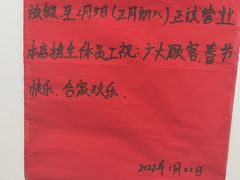 放假.至2月5日(正月初八)正试营业
本店携全体员工祝:广大顾客.春节
快乐.合家欢乐.
2025年1月22日